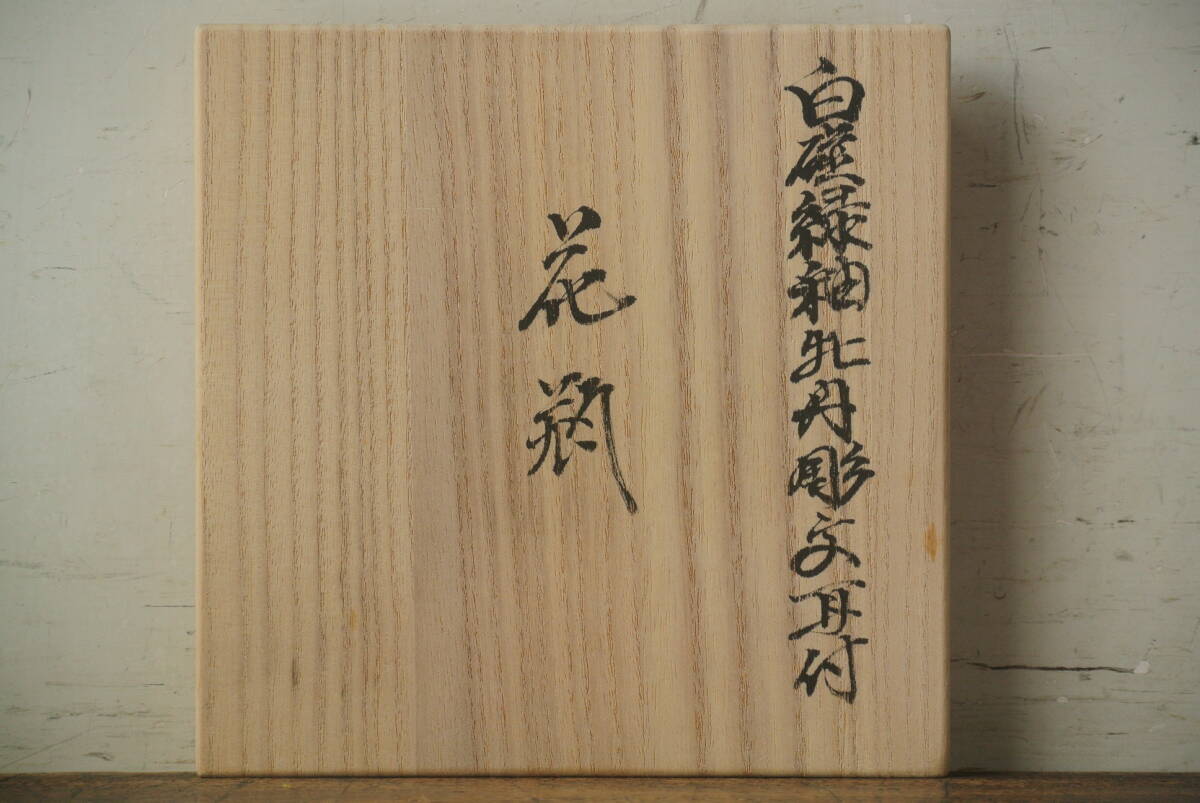 白磁緑釉牡丹彫文耳付
花瓶